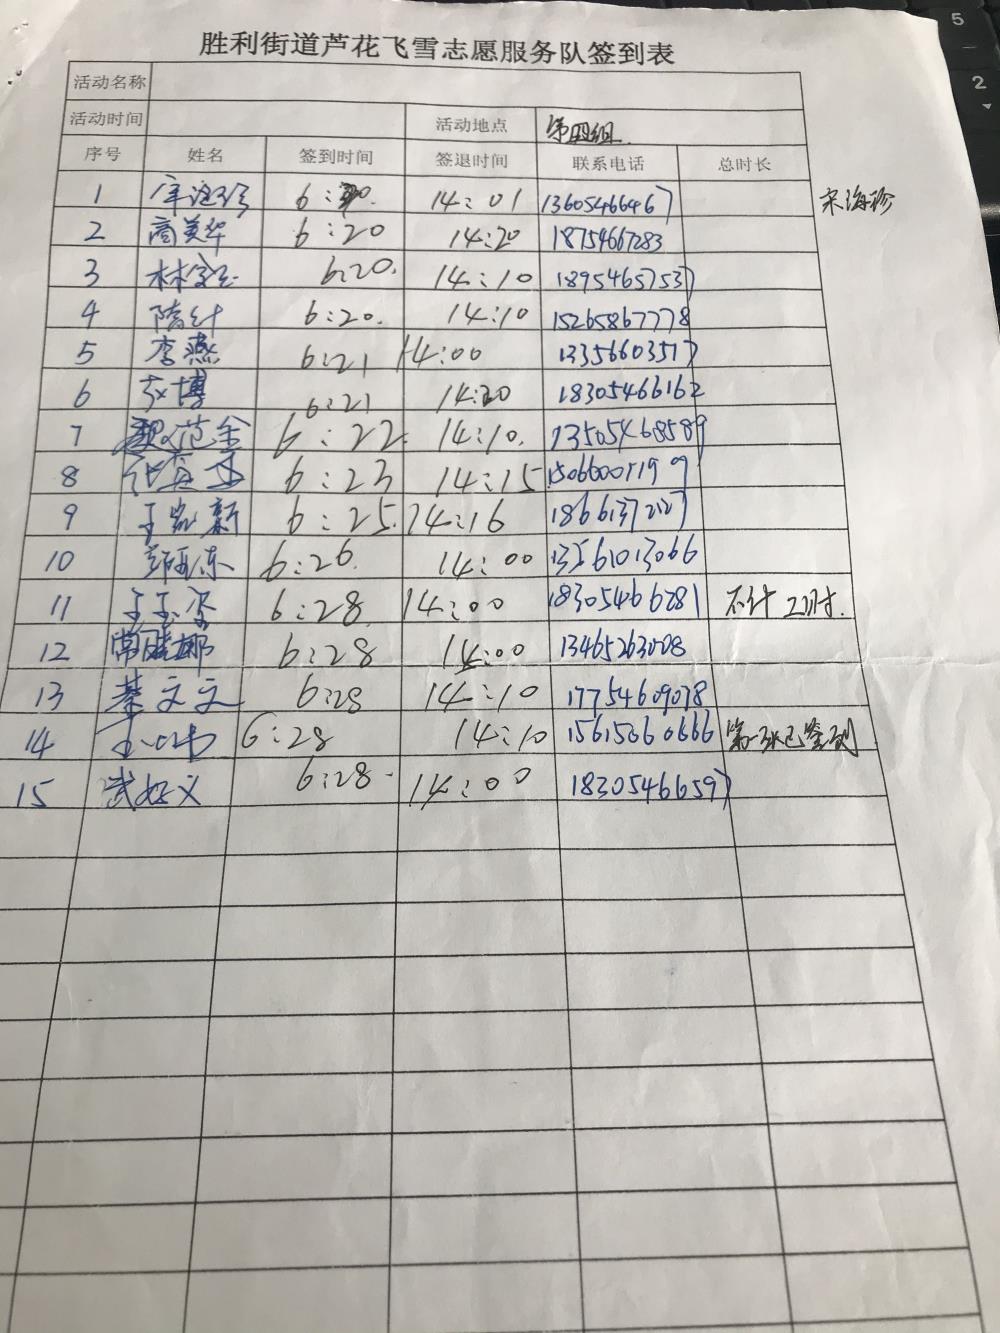 胜利街道芦花飞雪志愿服务队签到表
活动名称
活动时间 活动地点 第四组
序号 姓名 签到时间 签退时间 联系电话 总时长
1 宋海珍 6:20 14:01 13605466467 宋海珍
2 商美华 6:20 14:20 18754667283
3 6:20 14:10 18954657537
4 隋红 6:20 14:10 15265867778
5 李燕 6:21 14:00 13356603517
6 赵博 6:21 14:20 18305466162
7 魏范金 6:22 14:10 13505468589
8 6:23 14:15
9 于凯新 6:25 14:16
10 6:26 14:00 13561013066
11 6:28 14:00 18305466281 不计工时
12 常晓娜 6:28 14:00 13465263008
13 綦文文 6:28 14:10 17754609078
14 6:28 14:10 15615060666 第一张已签到
15 武好义 6:28 14:00 18305466597